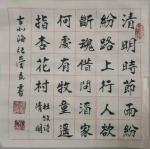 清明時節雨紛
紛路上行人欲
斷魂借問酒家
何處有牧童遥
指杏花村
杜牧詩
清明